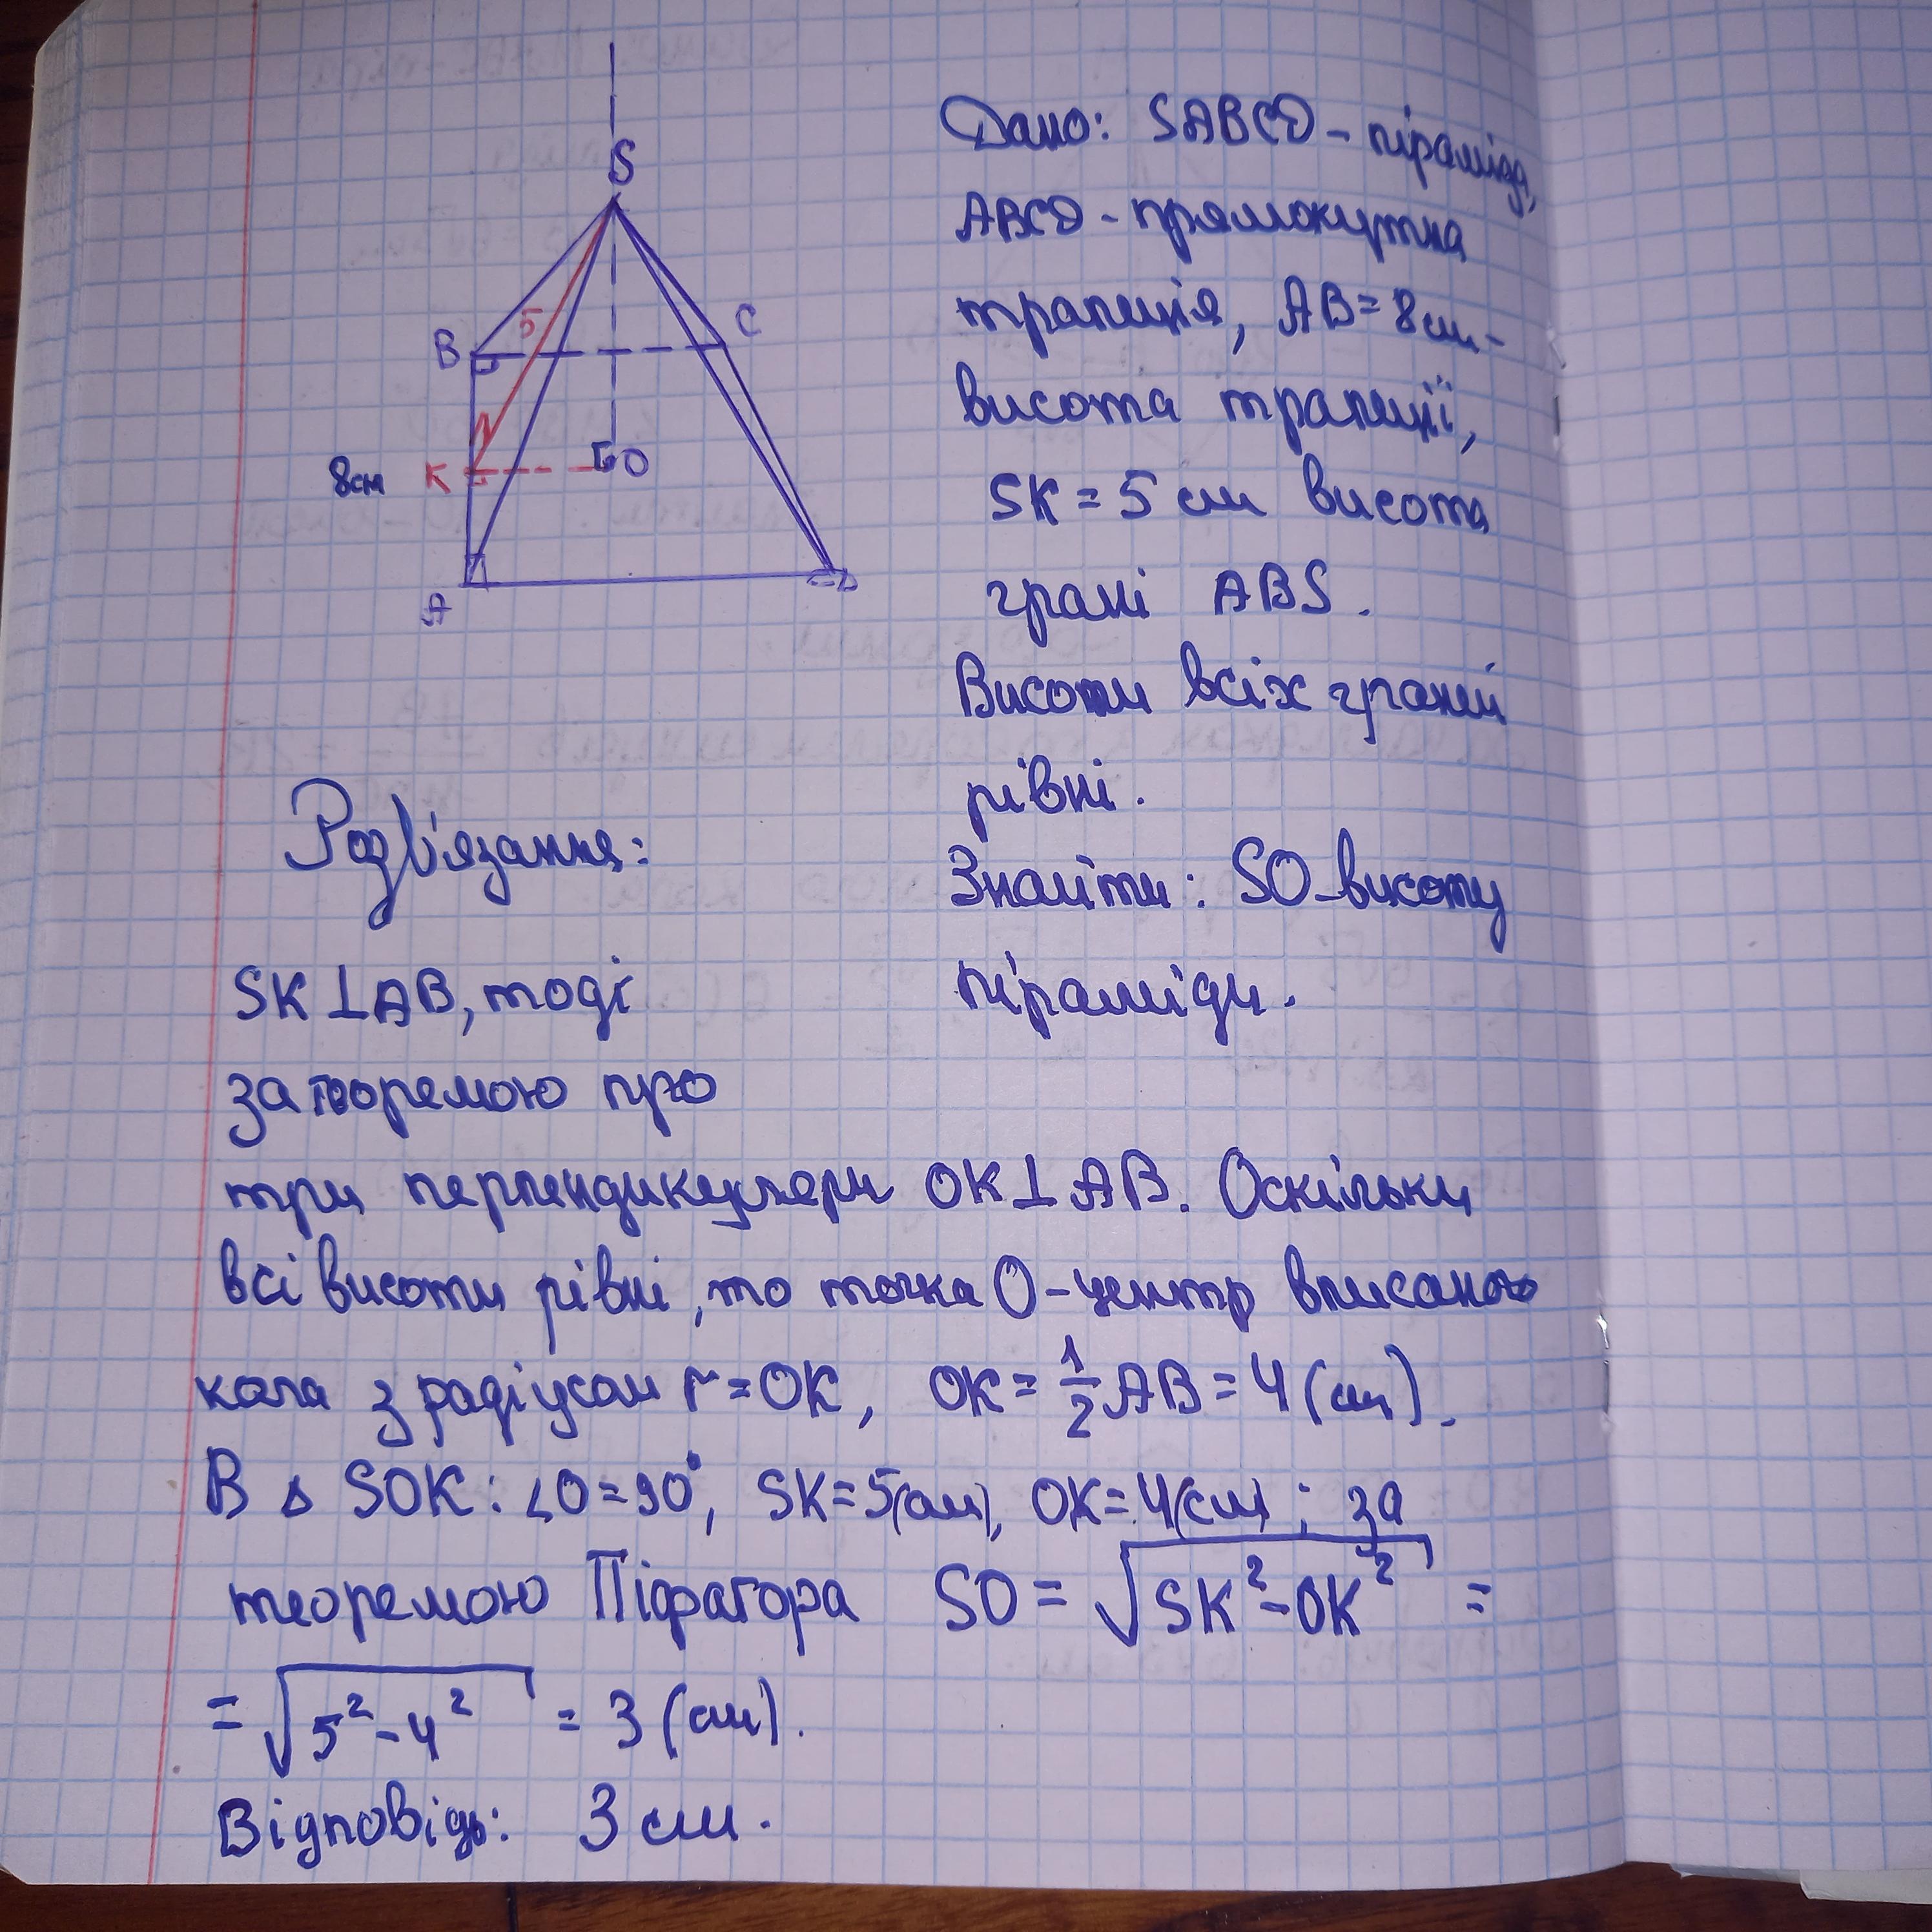 S
B
5
C
8см
K
O
A
D
Дано: SABCD - піраміда,
ABCD - прямокутна
трапеція, AB = 8см -
висота трапеції,
SK = 5 см висота
грані ABS.
Висоти всіх граней
рівні.
Знайти: SO - висоту
піраміди.
Розв'язання:
SK⊥AB, тоді
за теоремою про
три перпендикуляри OK⊥AB. Оскільки
всі висоти рівні, то точка O - центр вписаного
кола з радіусом r = OK, OK = 1/2 AB = 4 (см).
В △ SOK: ∠O = 90°, SK = 5(см), OK = 4(см); за
теоремою Піфагора SO = √SK² - OK² =
= √5² - 4² = 3 (см).
Відповідь: 3 см.